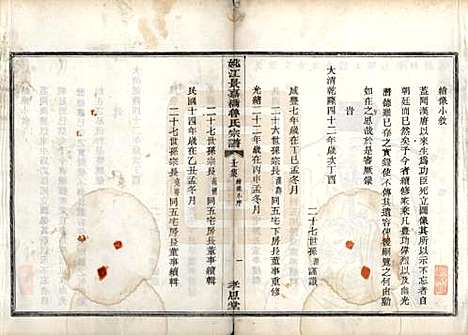 續像小敘
蓋聞漢唐以來生為功臣死立圖像其所以示不忘者自
朝廷而已然矣于今者續修宗乘凡豊功偉烈以及南光
潛德雖已存之實錄使不傳其遺容俾後嗣覽之何由動
如在之思哉於是審厥像
大清乾隆四十二年歲次丁酉
旹
二十七世孫 謹識
咸豐七年歲在丁巳孟冬月
二十六世孫宗長 同五宅下房長董事重修
光緒二十二年歲在丙申孟冬月
姚江景嘉橋魯氏宗譜
世像小序
一
孝思堂
二十七世孫宗長 同五宅房長董事續輯
民國十四年歲在 孟冬月
二十七世孫宗長 同五宅房長董事續輯